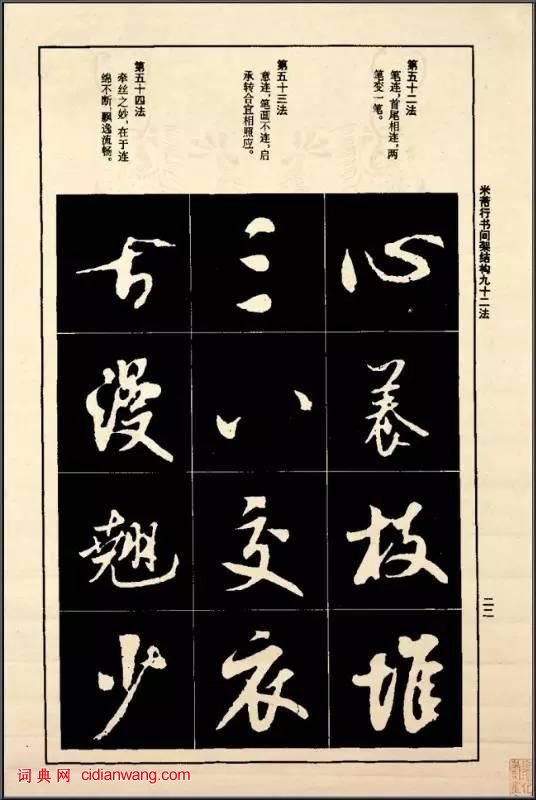 米芾行书间架结构九十二法
二二
第五十二法
笔连,首尾相连,两
笔变一笔。
心养枝堆
第五十三法
意连,笔画不连,启
承转合宜相照应。
三八交衣
第五十四法
牵丝之妙,在于连
绵不断,飘逸流畅。
古漫翘少
词典网 cidianwang.com